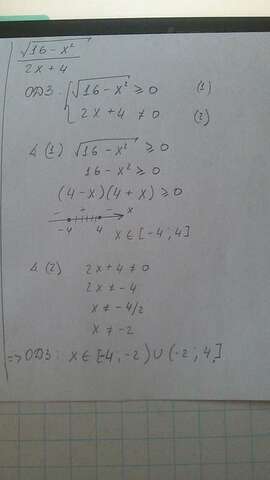 √16 - x²
2x + 4
ОДЗ: { √16 - x² ≥ 0 (1)
2x + 4 ≠ 0 (2)
1. (1) √16 - x² ≥ 0
16 - x² ≥ 0
(4 - x)(4 + x) ≥ 0
- + - x
-4 4
x ∈ [-4; 4]
1. (2) 2x + 4 ≠ 0
2x ≠ -4
x ≠ -4/2
x ≠ -2
=> ОДЗ: x ∈ [-4; -2) ∪ (-2; 4]